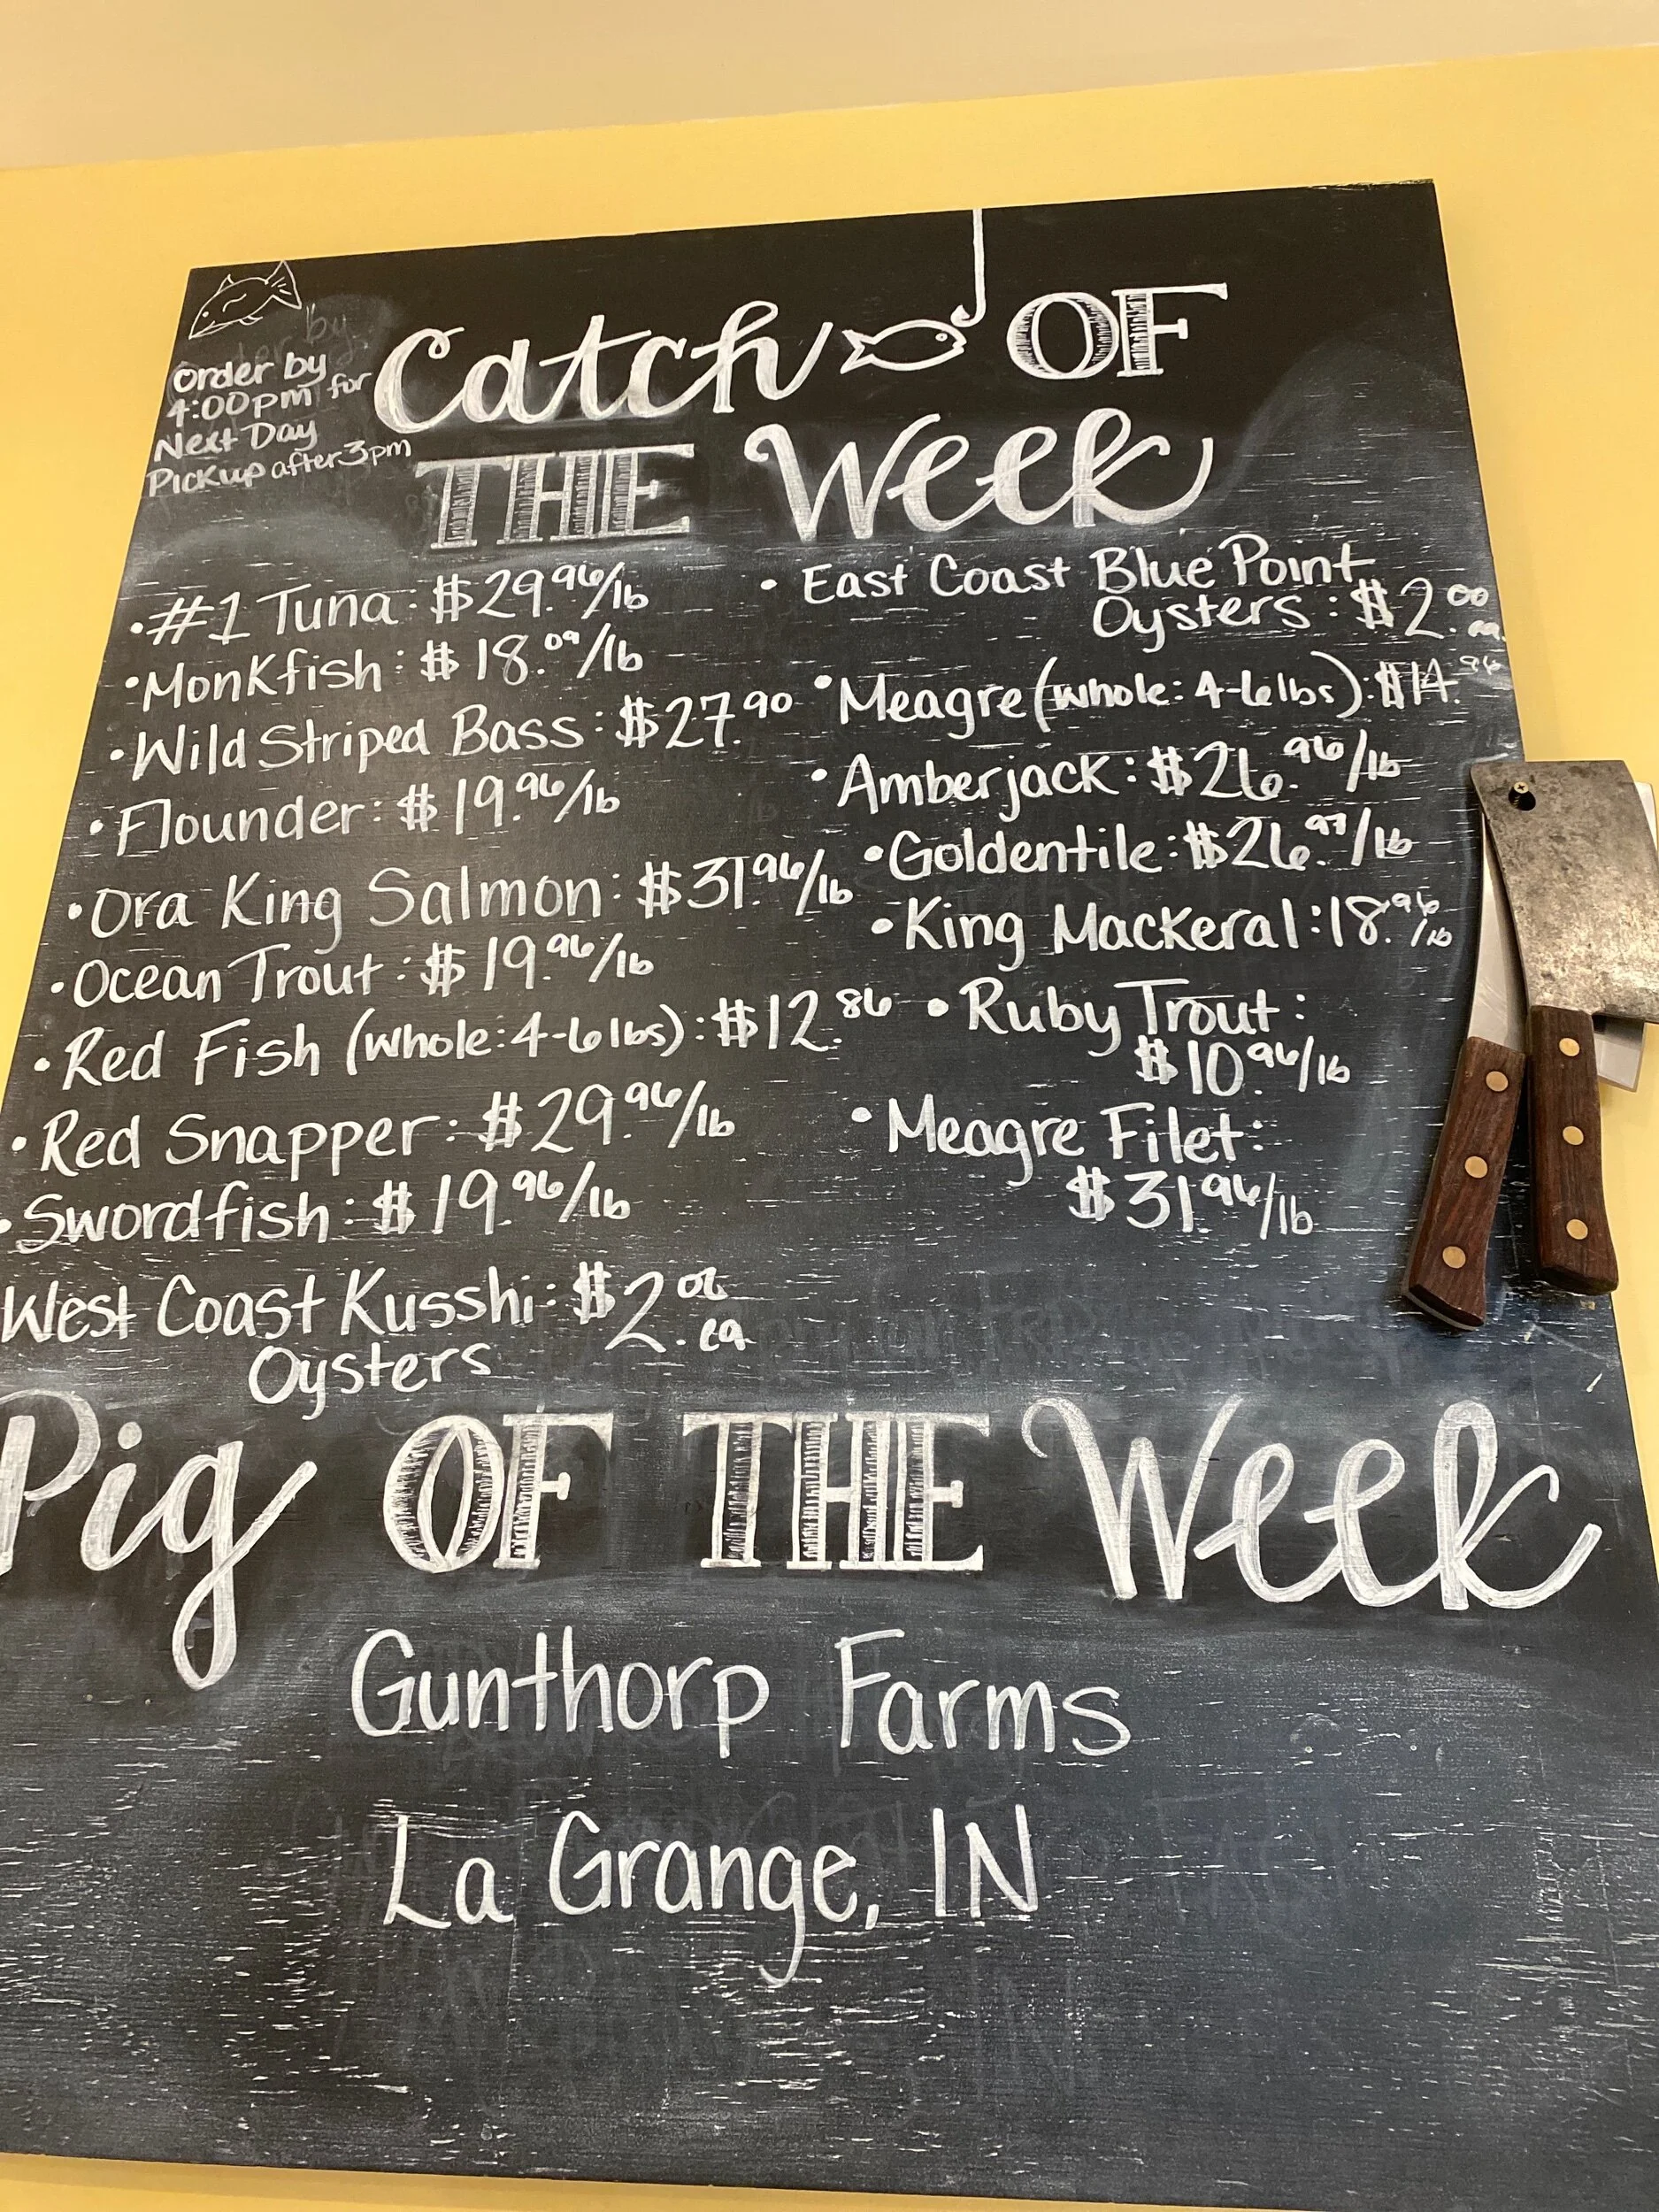 Order by
4:00pm for
Next Day
Pickup after 3pm
Catch OF
THE Week
•#1 Tuna: $29.96/lb
•Monkfish: $18.09/lb
•Wild Striped Bass: $27.90
•Flounder: $19.96/lb
•Ora King Salmon: $31.96/lb
•Ocean Trout: $19.96/lb
•Red Fish (whole: 4-6lbs): $12.86
•Red Snapper: $29.96/lb
•Swordfish: $19.96/lb
West Coast Kusshi: $2. ea
Oysters
•East Coast Blue Point
Oysters: $2.00 ea.
•Meagre (whole: 4-6lbs): $14.96
•Amberjack: $26.96/lb
•Goldentile: $26.97/lb
•King Mackeral: 18.96/lb
•Ruby Trout:
$10.96/lb
•Meagre Filet:
$31.96/lb
Pig OF THE Week
Gunthorp Farms
La Grange, IN